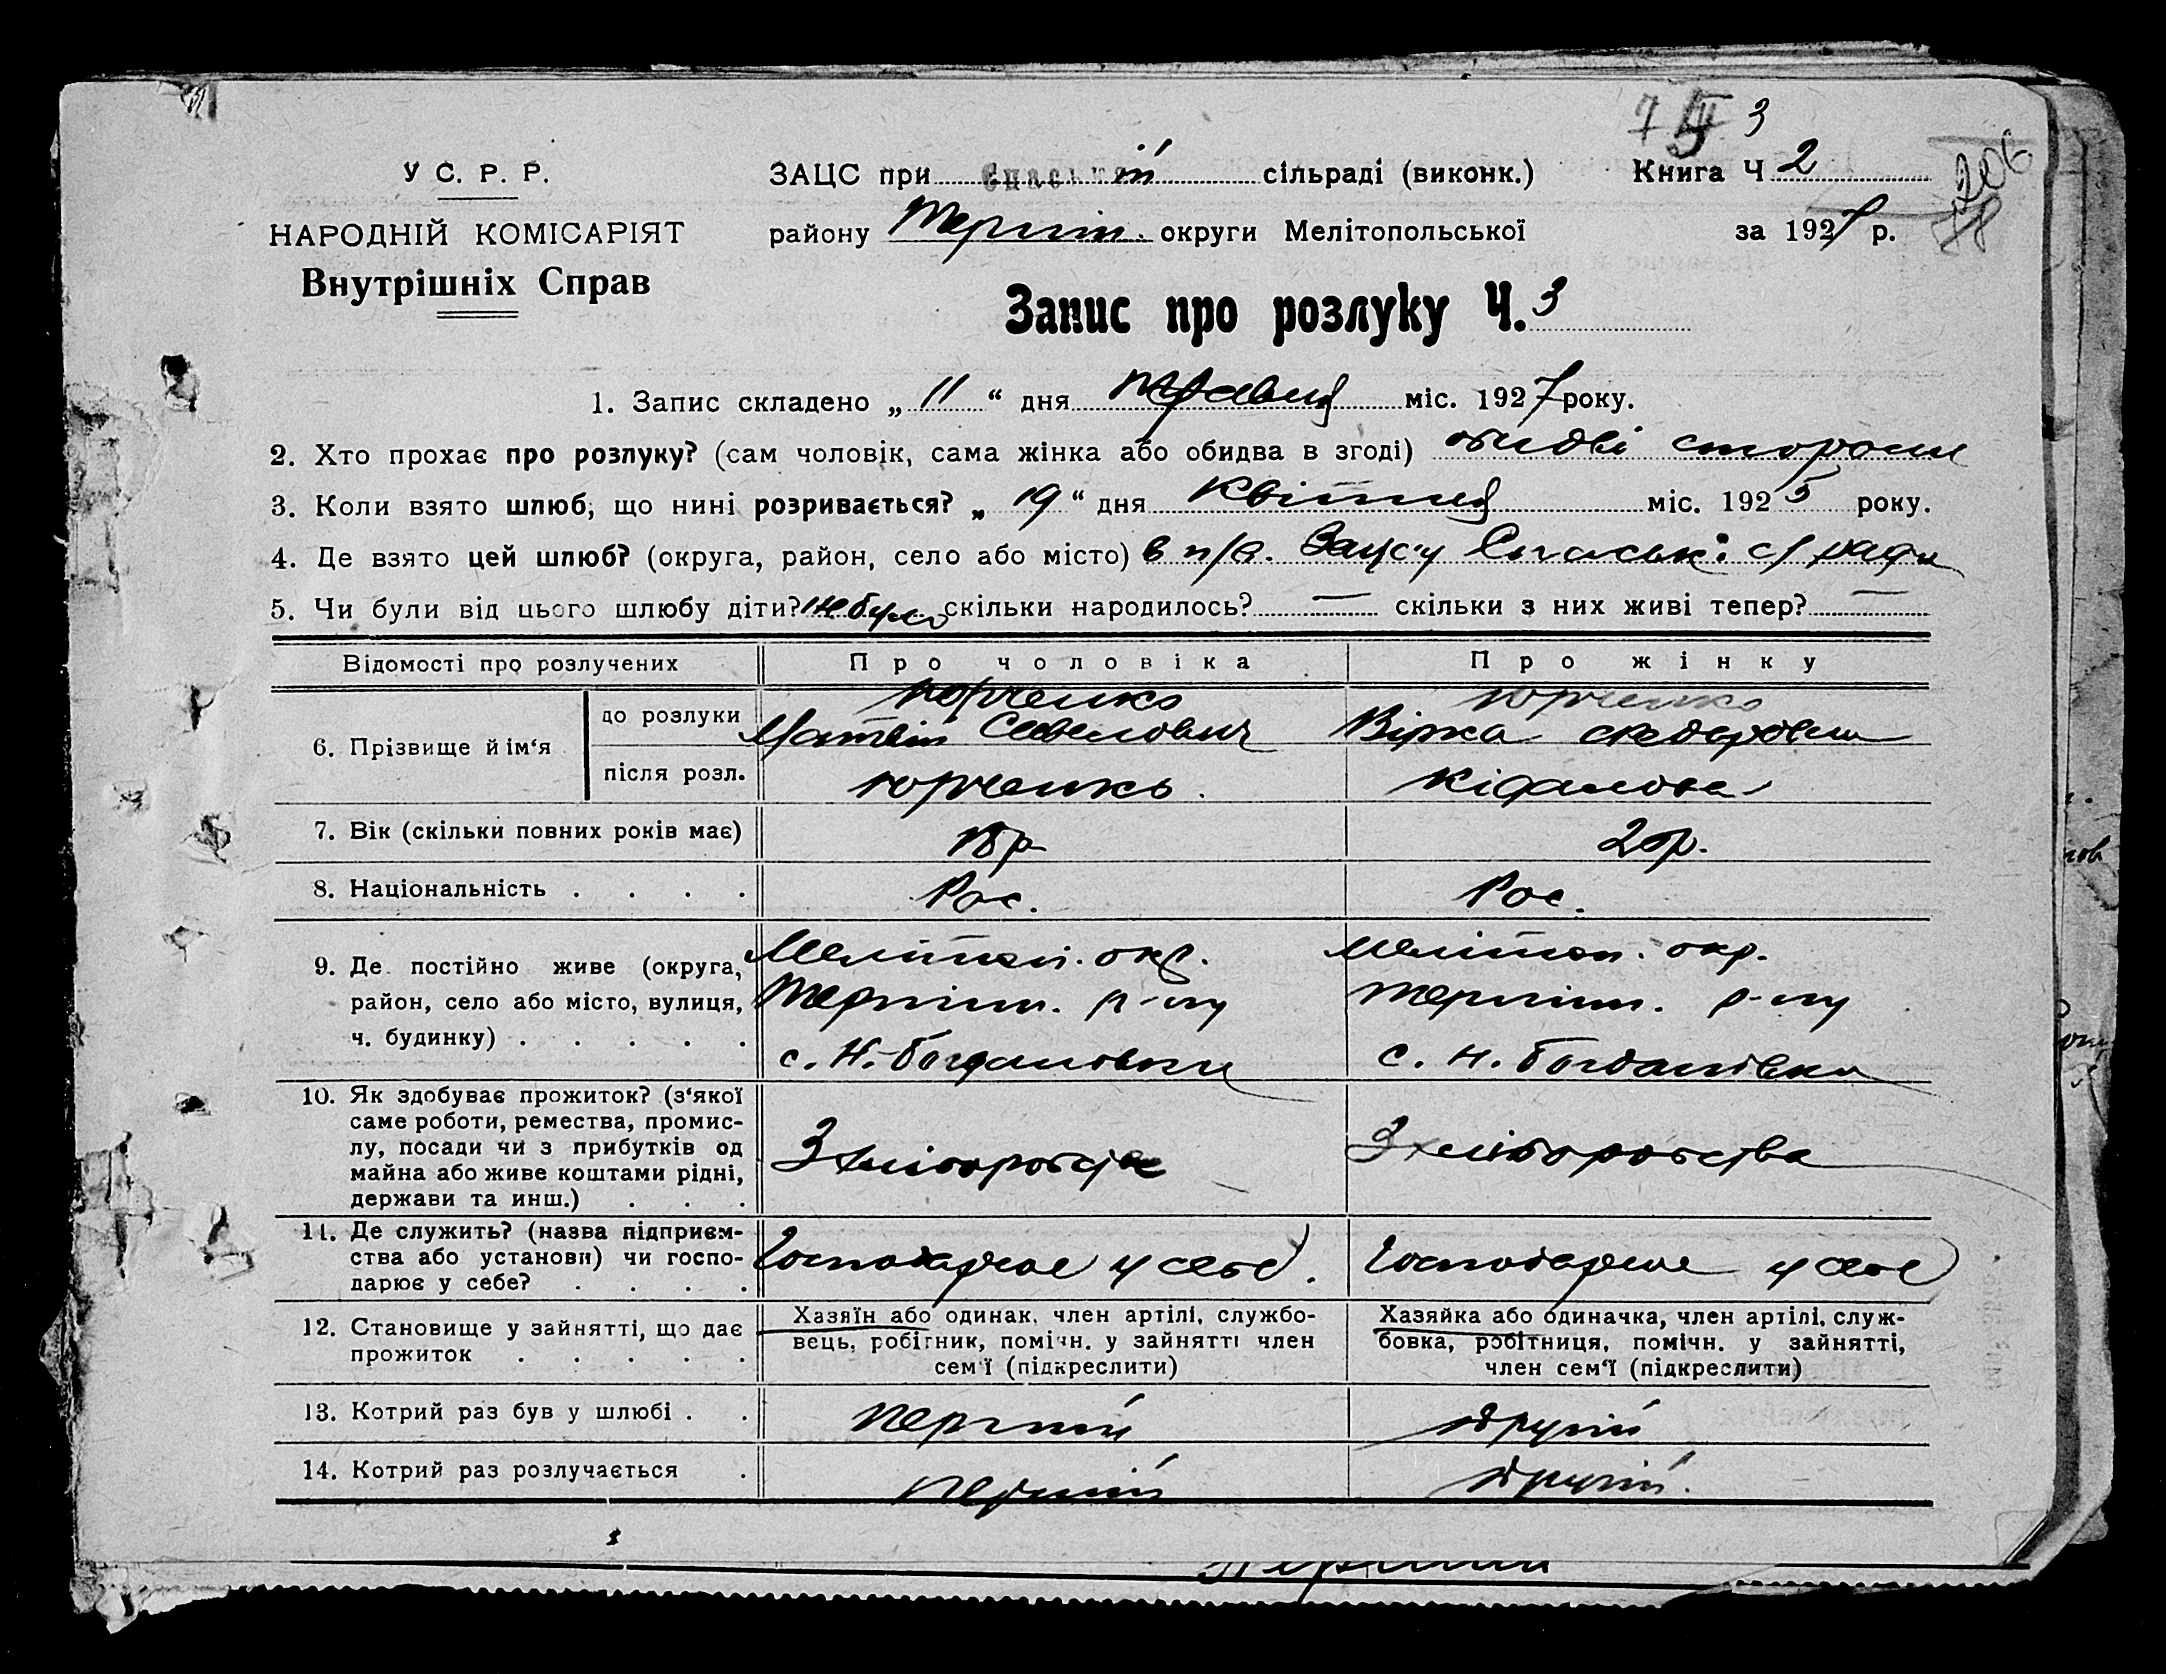 7 3
У С. Р. Р.
ЗАЦС при Спаській сільраді (виконк.)
Книга Ч 2
206
78
НАРОДНІЙ КОМІСАРІЯТ
району Терпін. округи Мелітопольської
за 1927 р.
Внутрішніх Справ
Запис про розлуку Ч. 3
1. Запис складено „ 11 “ дня травня міс. 1927 року.
2. Хто прохає про розлуку? (сам чоловік, сама жінка або обидва в згоді) обидві сторони
3. Коли взято шлюб, що нині розривається? „ 19 “ дня Квітня міс. 1925 року.
4. Де взято цей шлюб? (округа, район, село або місто) в п/в. Зацсу Спаськ: с/ ради
5. Чи були від цього шлюбу діти? не було скільки народилось? — скільки з них живі тепер? —
Відомості про розлучених
Про чоловіка
Про жінку
6. Прізвище й ім‘я
до розлуки
Юрченко
Матвій Савелович
Юрченко
Вірка Федоровна
після розл.
Юрченко.
7. Вік (скільки повних років має)
р
р.
8. Національність . . . .
Рос.
Рос.
9. Де постійно живе (округа,
район, село або місто, вулиця,
ч. будинку) . . . . .
Мелітоп. окр.
Терпінн. р-ну
с. Н.-Богдановки
Меліпоп. окр.
Терпінн. р-ну
с. Н. Богданівка
10. Як здобуває прожиток? (з‘якої
саме роботи, ремества, промис-
лу, посади чи з прибутків од
майна або живе коштами рідні,
держави та инш.) . . .
З хліборобства
З хліборобства
11. Де служить? (назва підприєм-
ства або установи) чи госпо-
дарює у себе? . . . .
Господарює у себе.
Господарює у себе
12. Становище у зайнятті, що дає
прожиток . . . . .
Хазяїн або одинак, член артілі, службо-
вець, робітник, помічн. у зайнятті член
сем‘ї (підкреслити)
Хазяйка або одиначка, член артілі, служ-
бовка, робітниця, помічн. у зайнятті,
член сем‘ї (підкреслити)
13. Котрий раз був у шлюбі . .
перший
другий
14. Котрий раз розлучається .
перший
другий.